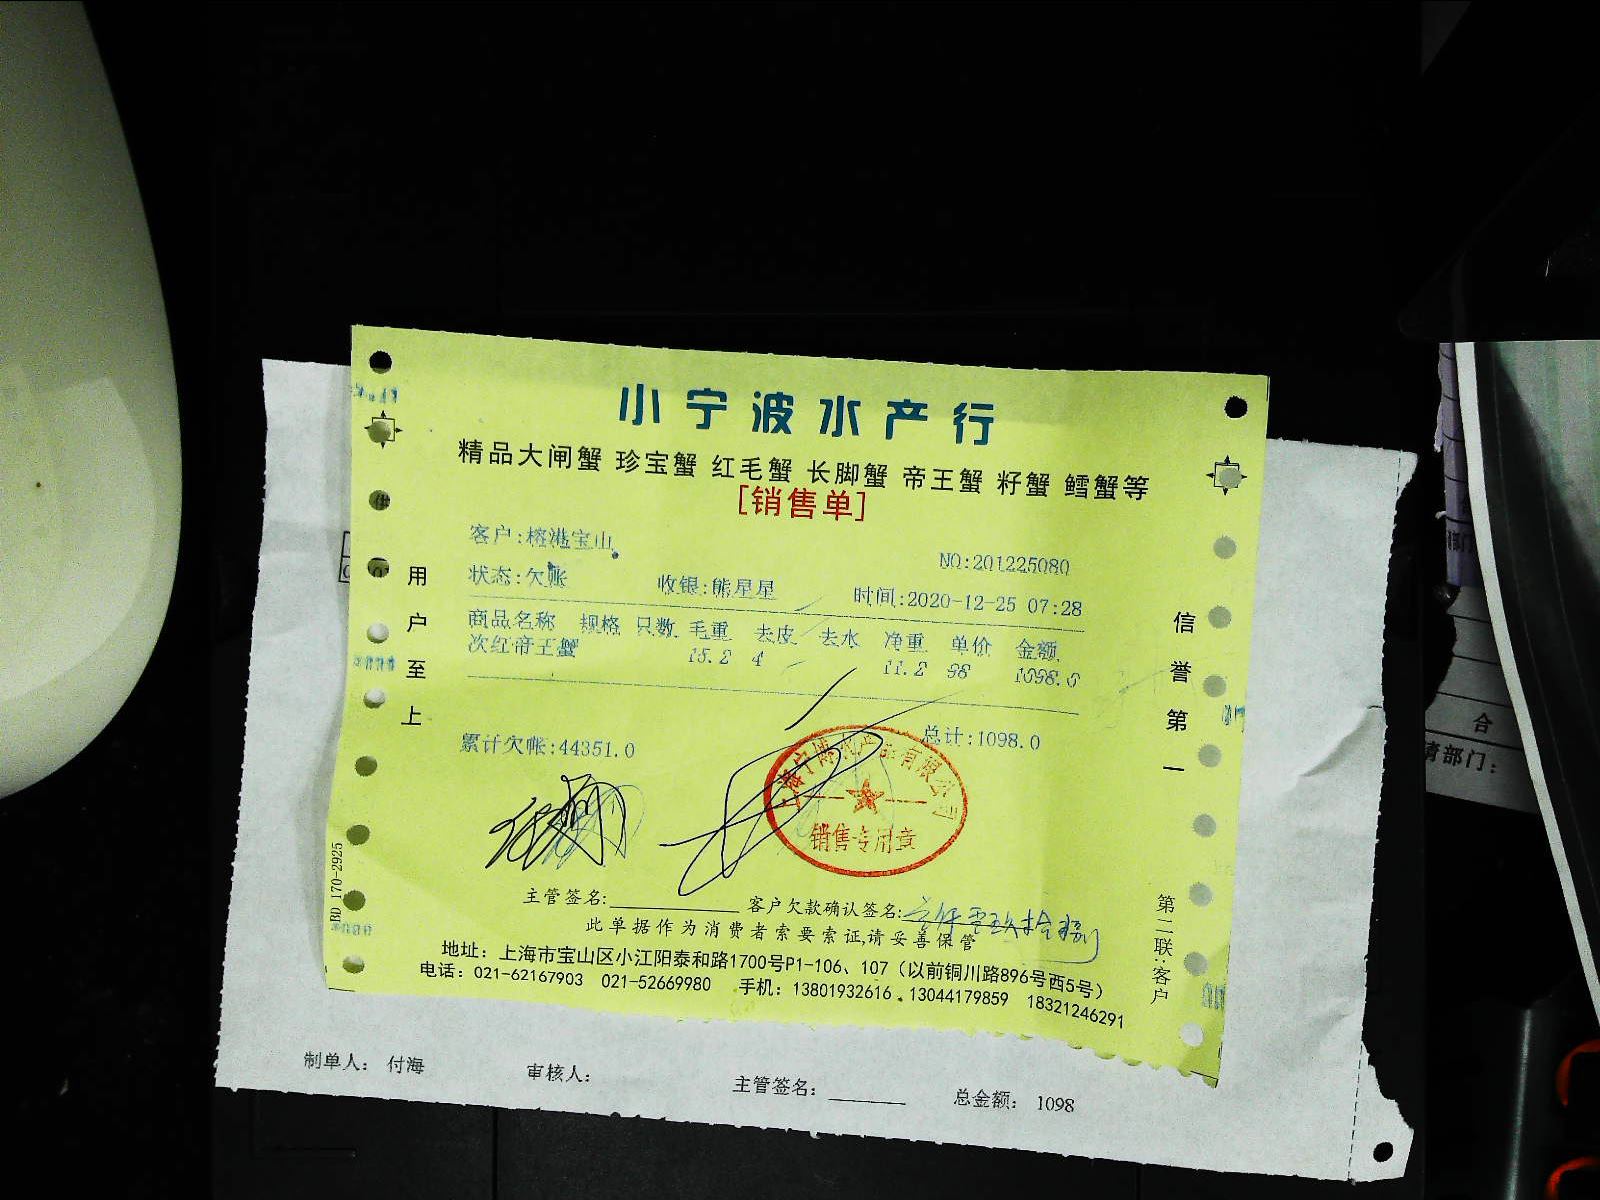 小宁波水产行
精品大闸蟹 珍宝蟹 红毛蟹 长脚蟹 帝王蟹 籽蟹 鳕蟹等
[销售单]
客户:榕港宝山
NO:201225080
状态:欠账 收银:熊星星 时间:2020-12-25 07:28
商品名称 规格 只数 毛重 去皮 去水 净重 单价 金额
次红帝王蟹 15.2 4 11.2 98 1098.0
累计欠帐:44351.0 总计:1098.0
用户至上
信誉第一
销售专用章
主管签名: 客户欠款确认签名:
此单据作为消费者索要索证,请妥善保管
地址：上海市宝山区小江阳泰和路1700号P1-106、107（以前铜川路896号西5号）
电话：021-62167903 021-52669980 手机：13801932616 . 13044179859 18321246291
第二联:客户
BD 170-2925
制单人: 付海 审核人: 主管签名: 总金额: 1098
合
部门: